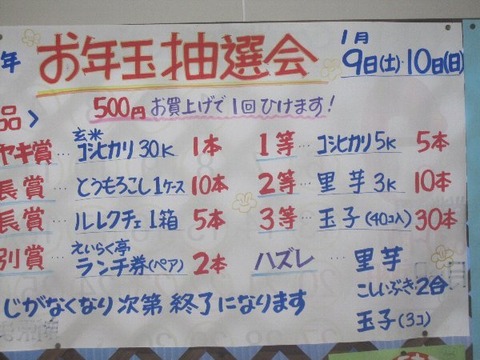 年 お年玉抽選会 1月
9日(土)・10日(日)
500円お買上げで1回ひけます!
品〉
ヤキ賞…玄米コシヒカリ30K 1本
長賞…とうもろこし1ケース 10本
長賞…ルレクチェ1箱 5本
別賞…えいらく亭ランチ券(ペア) 2本
1等…コシヒカリ5K 5本
2等…里芋3K 10本
3等…玉子(40コ入) 30本
ハズレ 里芋
こしいぶき2合
玉子(3コ)
じがなくなり次第終了になります